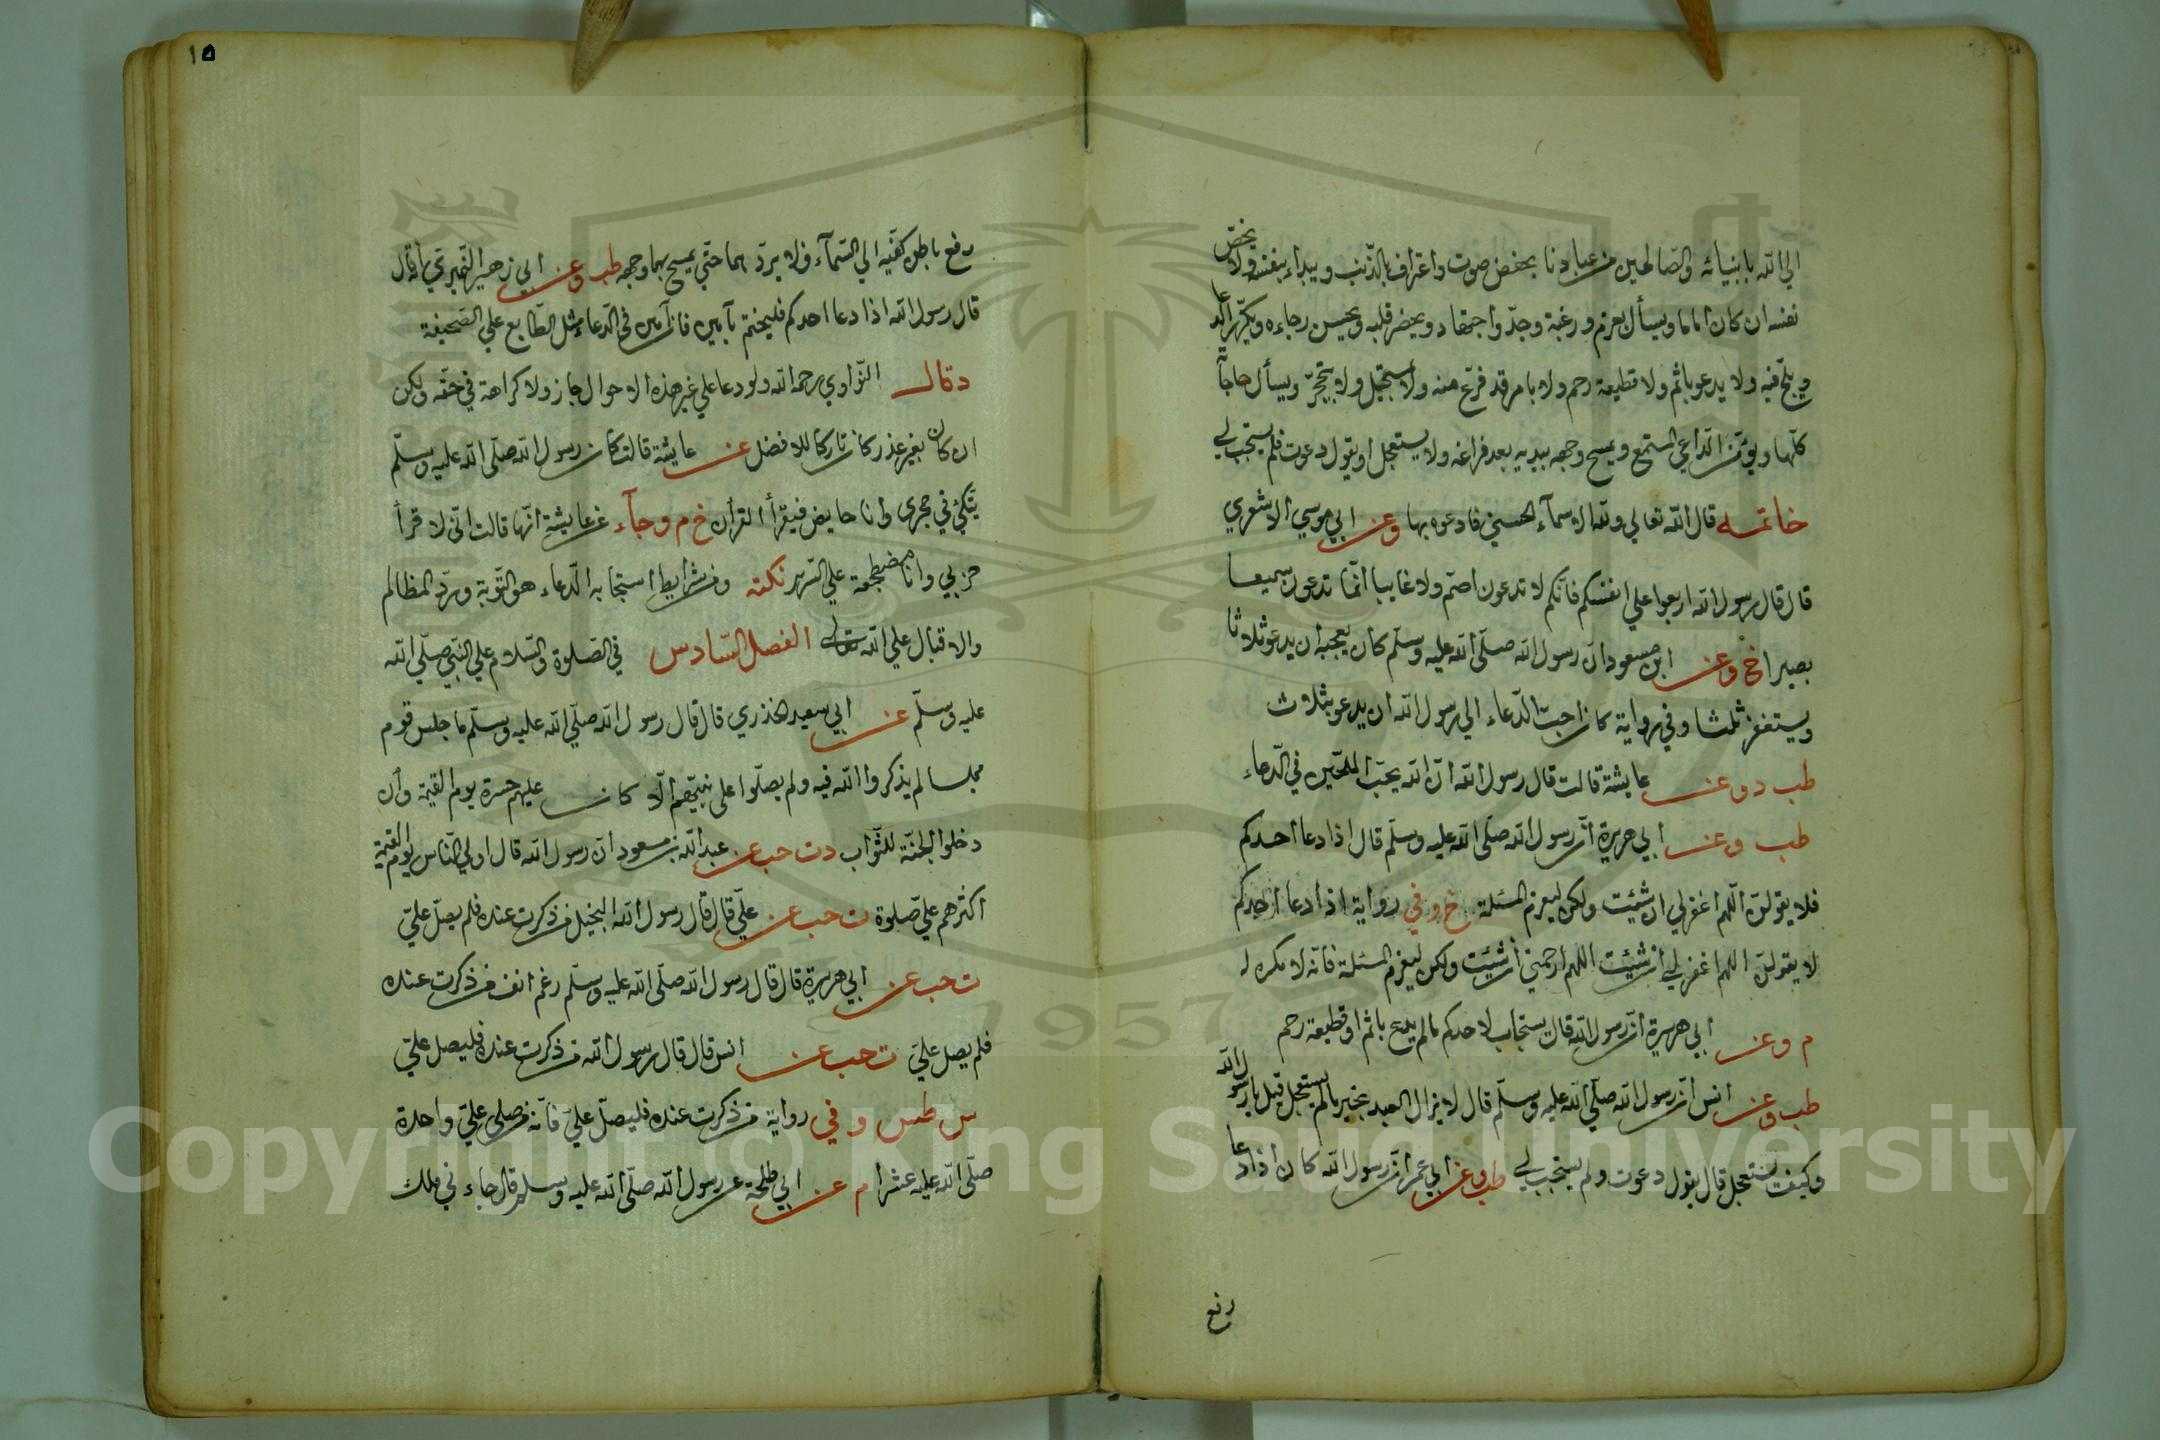 الي الله بانبيائه والصالحين من عبادنا بخفض صوت واعتراف بالذنب ويبداء بنفسه ولا يخص
نفسه ان كان اماما ويسأل بعزم ورغبة وجدّ واجتهاد ويحضر قلبه ويحسن رجاءه ويكرّر الدعا
ويلحّ فيه ولا يدعو باثم ولا قطيعة رحم ولا بامر قد فرغ منه ولا يستحيل ولا يتحجّر ويسأل حاجاته
كلّها ويؤمّن الداعي المستمع ويمسح وجهه بيديه بعد فراغه ولا يستعجل او يقول دعوت فلم يستجب لي
خاتمه قال الله تعالي ولله الاسمآء الحسني فادعوه بها وعن ابي موسي الاشعري
قال قال رسول الله اربعوا علي انفسكم فانّكم لا تدعون اصمّ ولا غايبا انّما تدعون سميعا
بصيرا خ وعن ابن مسعود انّ رسول الله صلّى الله عليه وسلّم كان يعجبه ان يدعو ثلاثا
ويستغفر ثلثا وفي رواية كان احبّ الدّعاء الي رسول الله ان يدعو بثلاث
طب د وعن عايشة قالت قال رسول الله انّ الله يحبّ الملحّين في الدّعاء
طب وعن ابي هريرة انّ رسول الله صلّى الله عليه وسلّم قال اذا دعا احدكم
فلا يقولنّ اللّهم اغفر لي ان شئيت ولكن ليعزم المسئلة خ وفي رواية اذا دعا احدكم
لا يقولنّ اللهم اغفر لي ان شئيت اللهم ارحمني ان شئيت ولكن ليعزم المسئلة فانّه لا مكره له
م وعن ابي هريرة انّ رسول الله قال يستجاب لاحدكم ما لم يدع باثم او قطيعة رحم
طب وعن انس انّ رسول الله صلّى الله عليه وسلّم قال لا يزال العبد بخير ما لم يستعجل قيل يا رسول الله
وكيف يستعجل قال يقول دعوت ولم يستجب لي طب وعن ابي عمر انّ رسول الله كان اذا دعا
رفع
١٥
رفع باطن كفّيه الي السّمآء ولا يردّهما حتّي يمسح بهما وجهه طب وعن ابي زهير النّميري انّه قال
قال رسول الله اذا دعا احدكم فليختم بآمين فانّ آمين في الدّعاء مثل الطّابع علي الصّحيفة
د قال النّواوي رحمه الله ولو دعا علي غير هذه الاحوال جاز ولا كراهة في حقّه ولكن
ان كان بغير عذر كان تاركا للافضل عن عايشة قالت كان رسول الله صلّى الله عليه وسلّم
يتّكئ في حجري وانا حايض فيقرأ القرآن خ م وجآء عن عايشة انّها قالت انّي لاقرأ
حزبي وانا مضطجعة علي السّرير نكته ومن شرايط استجابة الدّعاء هو التّوبة وردّ المظالم
والاقبال علي الله تعالي الفصل السّادس في الصّلوة والسّلام علي النّبي صلّي الله
عليه وسلّم عن ابي سعيد الخذري قال قال رسول الله صلّي الله عليه وسلّم ما جلس قوم
مجلسا لم يذكروا الله فيه ولم يصلّوا على نبيّهم الّا كان عليهم حسرة يوم القيمة وان
دخلوا الجنّة للثّواب دت حب عن عبد الله بن مسعود انّ رسول الله قال اولي النّاس يوم القيمة
اكثرهم عليّ صلوة ت حب عن عليّ قال قال رسول الله البخيل من ذكرت عنده فلم يصلّ عليّ
ت حب عن ابي هريرة قال قال رسول الله صلّى الله عليه وسلّم رغم انف من ذكرت عنده
فلم يصل عليّ ت حب عن انس قال قال رسول الله من ذكرت عنده فليصل عليّ
س طس وفي رواية من ذكرت عنده فليصلّ عليّ فانّه من صلى عليّ واحدة
صلّى الله عليه عشرا م عن ابي طلحة عن رسول الله صلّى الله عليه وسلم قال جاءني ملك
1957
Copyright © King Saud University